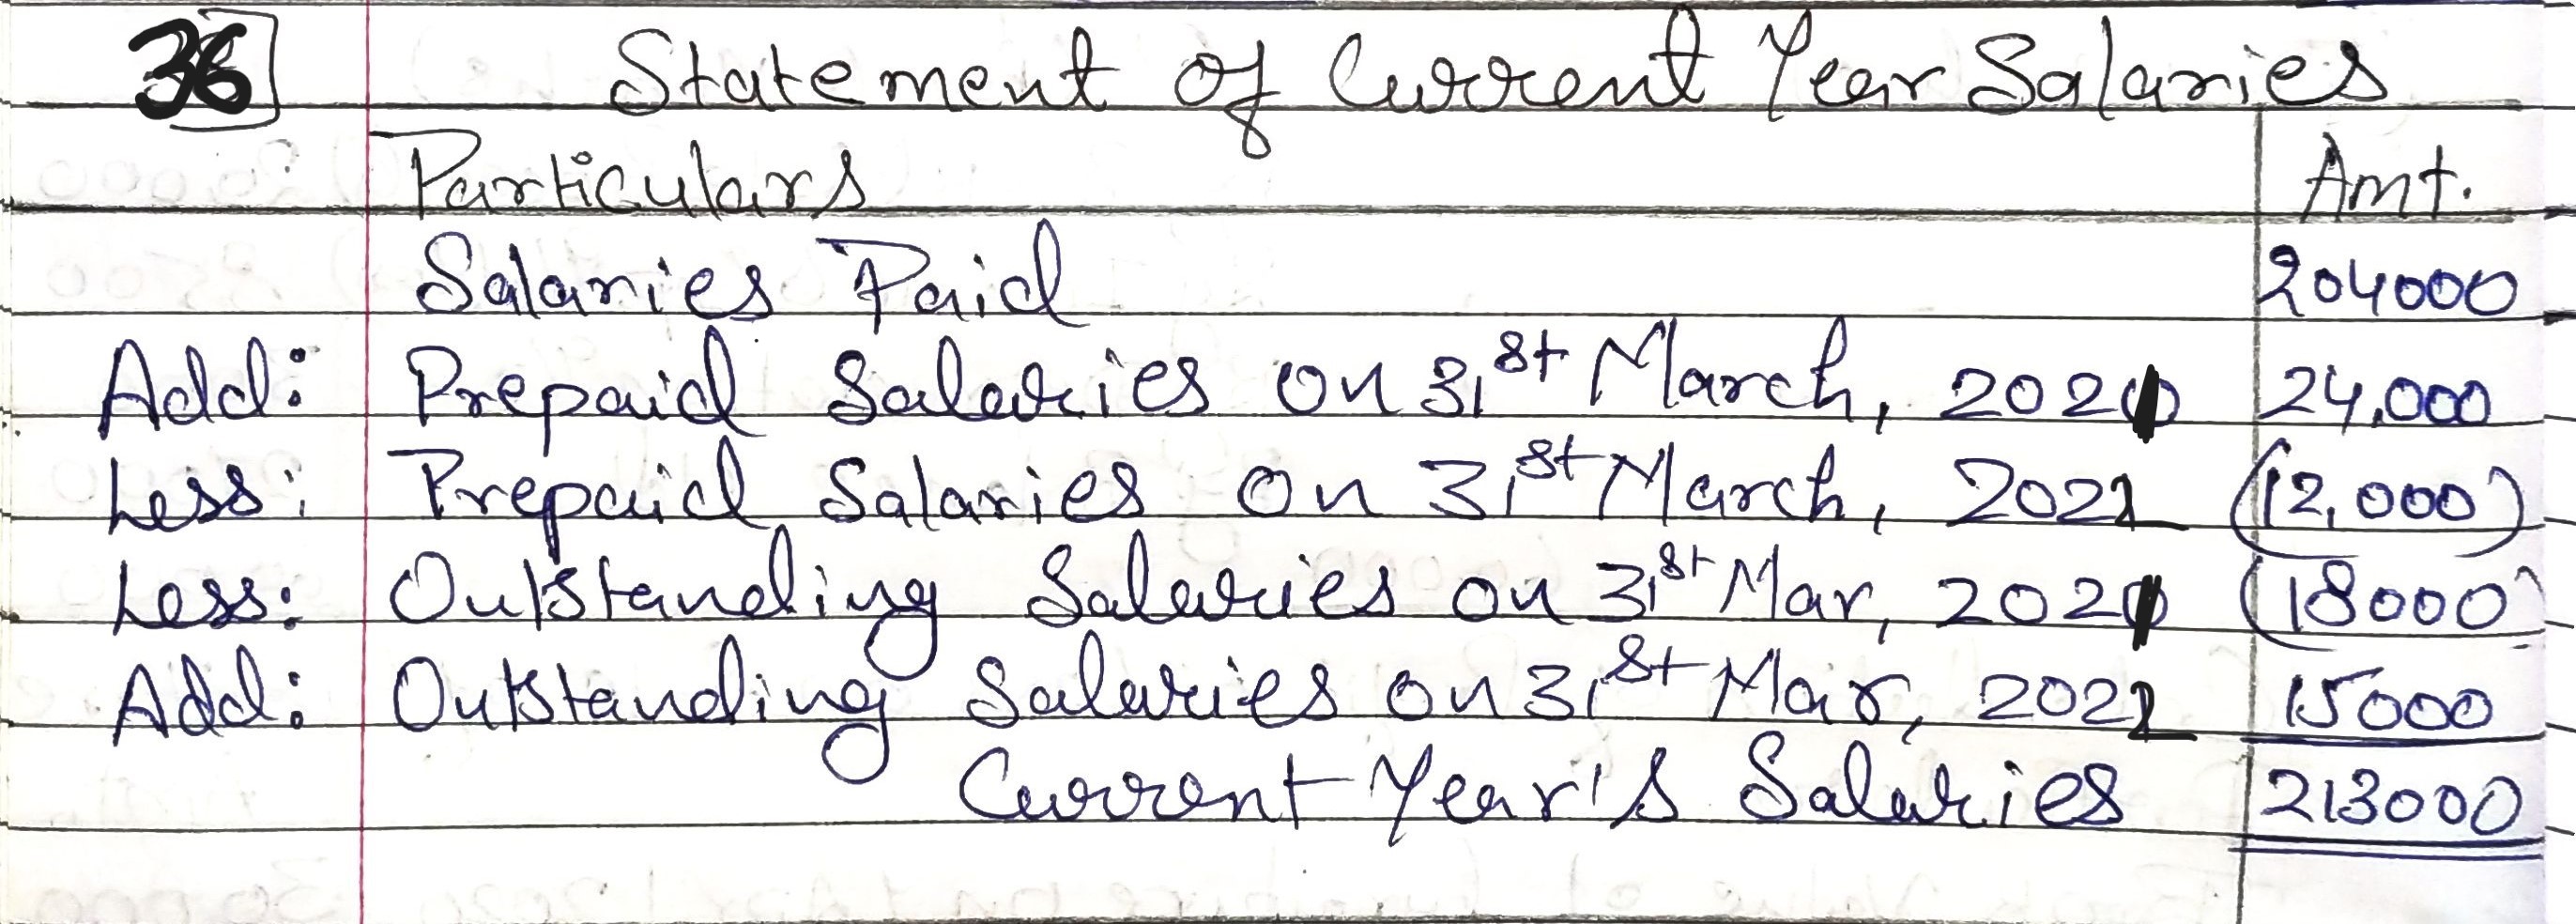 36 Statement of Current Year Salaries
Particulars Amt.
Salaries Paid 204000
Add: Prepaid Salaries on 31st March, 2021 24,000
Less: Prepaid Salaries on 31st March, 2022 (12,000)
Less: Outstanding Salaries on 31st Mar, 2021 (18000)
Add: Outstanding Salaries on 31st Mar, 2022 15000
Current Year's Salaries 213000